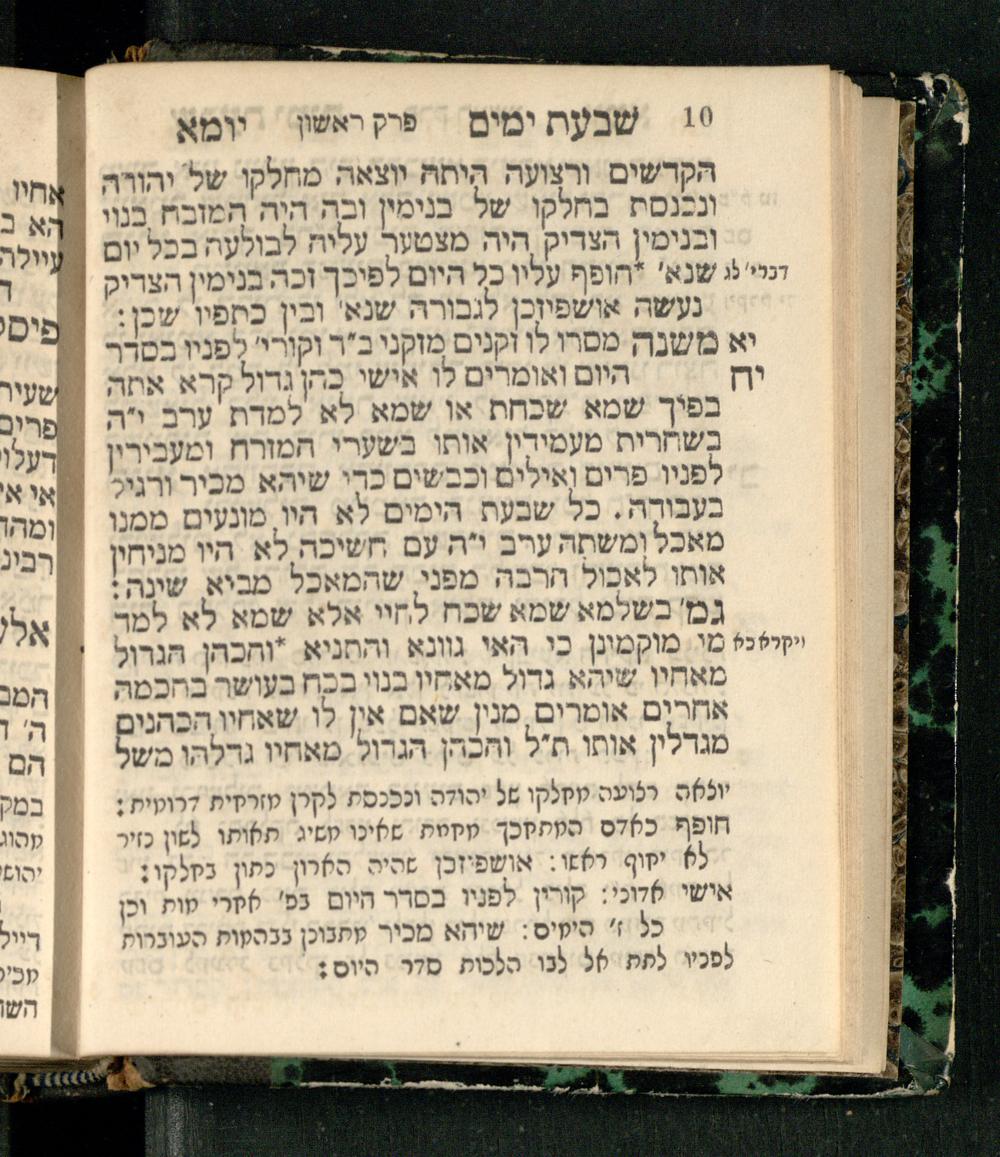 10 שבעת ימים פרק ראשון יומא
הקדשים ורצועה היתה יוצאה מחלקו של יהודה
ונכנסת בחלקו של בנימין ובה היה המזבח בנוי
ובנימין הצדיק היה מצטער עליה לבולעה בכל יום
דברי' לג שנא' *חופף עליו כל היום לפיכך זכה בנימין הצדיק
נעשה אושפיזכן לגבורה שנא' ובין כתפיו שכן:
יא משנה מסרו לו זקנים מזקני ב"ד וקורי' לפניו בסדר
יח היום ואומרים לו אישי כהן גדול קרא אתה
בפיך שמא שכחת או שמא לא למדת ערב י"ה
בשחרית מעמידין אותו בשערי המזרח ומעבירין
לפניו פרים ואילים וכבשים כדי שיהא מכיר ורגיל
בעבודה. כל שבעת הימים לא היו מונעים ממנו
מאכל ומשתה ערב י"ה עם חשיכה לא היו מניחין
אותו לאכול הרבה מפני שהמאכל מביא שינה:
גמ' בשלמא שמא שכח לחיי אלא שמא לא למד
ויקרא כא מי מוקמינן כי האי גוונא והתניא *והכהן הגדול
מאחיו שיהא גדול מאחיו בנוי בכח בעושר בחכמה
אחרים אומרים מנין שאם אין לו שאחיו הכהנים
מגדלין אותו ת"ל והכהן הגדול מאחיו גדלהו משל
יוצאה רצועה מחלקו של יהודה ונכנסת לקרן מזרחית דרומית:
חופף כאדם המתחכך מחמת שאינו משיג תאותו לשון נזיר
לא יחוף ראשו: אושפיזכן שהיה הארון נתון בחלקו:
אישי אדוני: קורין לפניו בסדר היום בפ' אחרי מות וכן
כל ז' הימים: שיהא מכיר מתבונן בבהמות העוברות
לפניו לתת אל לבו הלכות סדר היום:
אחיו
הא
עיילה
שעיר
פרים
אי
המב
ה'
הם
במק